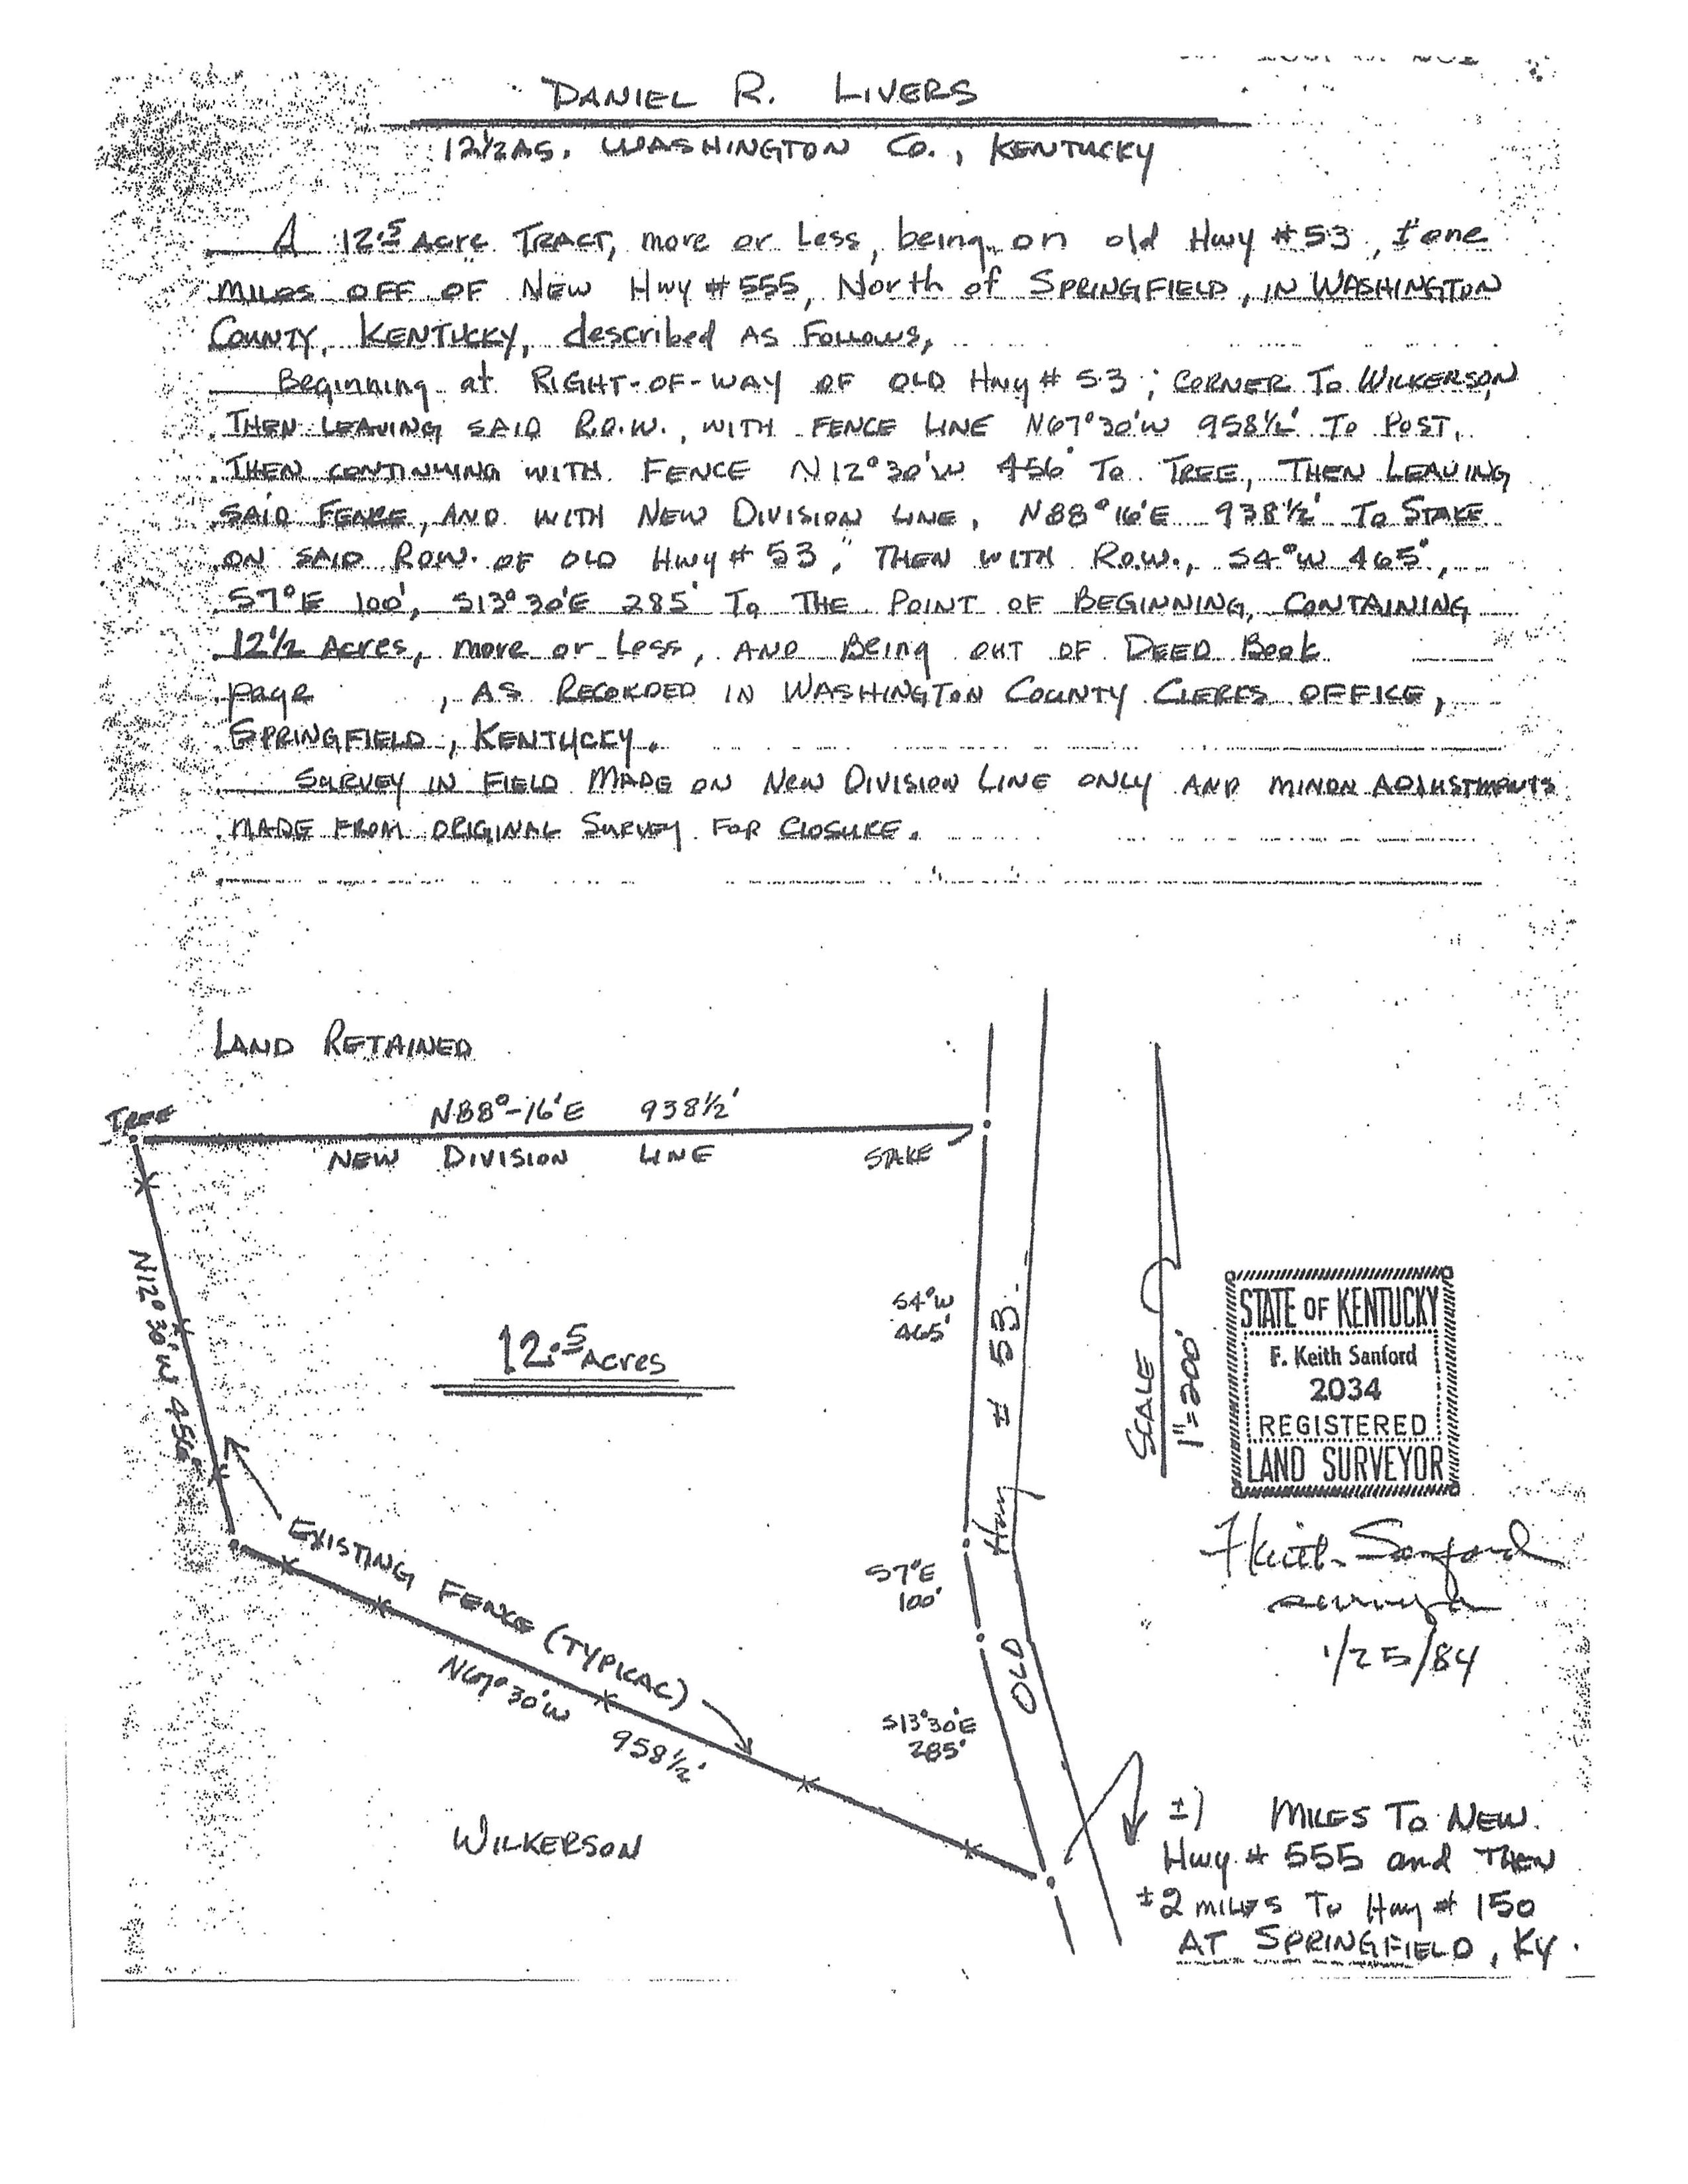 DANIEL R. LIVERS
12½ AS. WASHINGTON Co., KENTUCKY
A 12.5 Acre TRACT, more or Less, being on old Hwy #53, ± one
MILES OFF OF NEW Hwy #555, North of SPRINGFIELD, IN WASHINGTON
COUNTY, KENTUCKY, described AS FOLLOWS,
Beginning at RIGHT-OF-WAY OF OLD Hwy # 53; CORNER TO WILKERSON,
THEN LEAVING SAID R.O.W., WITH FENCE LINE N67°30'W 958½' TO POST,
THEN CONTINUING WITH FENCE N12°30'W 456' TO TREE, THEN LEAVING
SAID FENCE, AND WITH NEW DIVISION LINE, N88°16'E 938½' TO STAKE
ON SAID R.O.W. OF OLD Hwy # 53, THEN WITH R.O.W., S4°W 465',
S7°E 100', S13°30'E 285' TO THE POINT OF BEGINNING, CONTAINING
12½ Acres, more or Less, AND Being OUT OF DEED Book
page , AS RECORDED IN WASHINGTON COUNTY CLERKS OFFICE,
SPRINGFIELD, KENTUCKY.
SURVEY IN FIELD MADE ON NEW DIVISION LINE ONLY AND MINOR ADJUSTMENTS
MADE FROM ORIGINAL SURVEY FOR CLOSURE.
LAND RETAINED
TREE
N88°-16'E 938½'
NEW DIVISION LINE
STAKE
N12°30'W 456'
S4°W
465'
12.5 Acres
Hwy # 53
OLD
SCALE
1"=200'
STATE OF KENTUCKY
F. Keith Sanford
2034
REGISTERED
LAND SURVEYOR
F Keith Sanford
surveyor
1/25/84
EXISTING FENCE (TYPICAL)
S7°E
100'
N67°30'W 958½'
S13°30'E
285'
WILKERSON
±1 MILES TO NEW
Hwy # 555 and THEN
±2 MILES To Hwy # 150
AT SPRINGFIELD, KY.